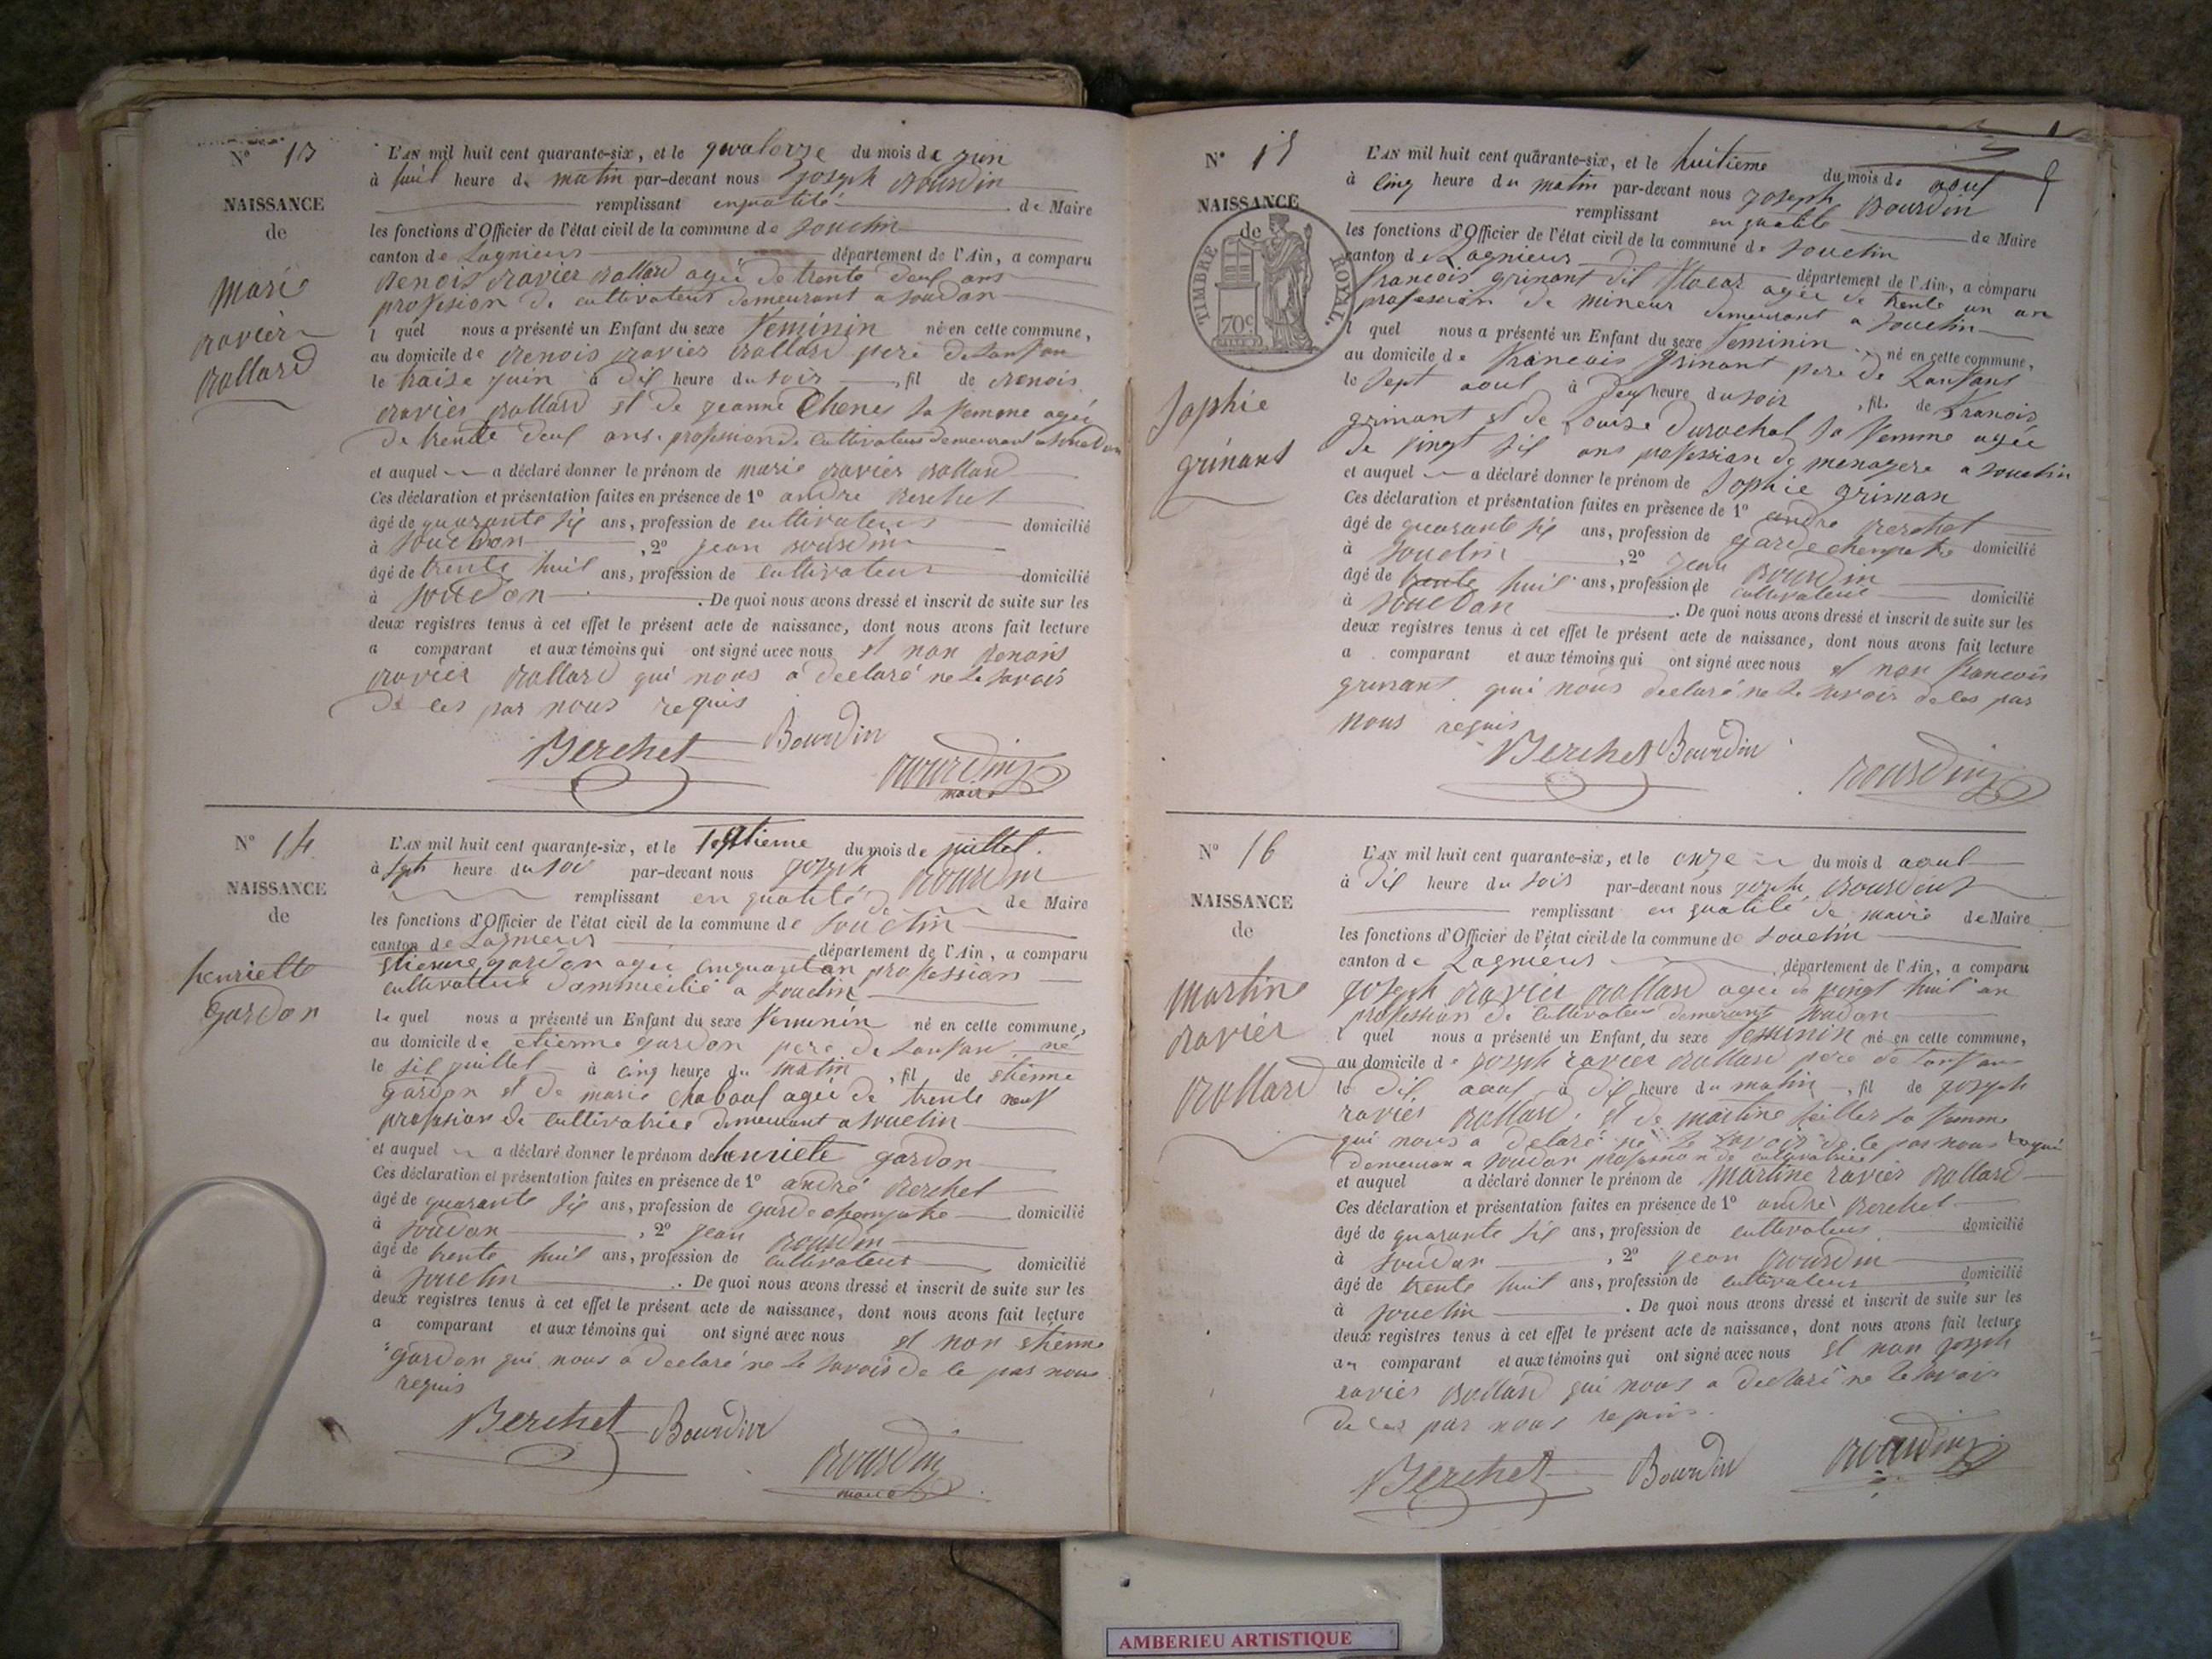 N° 13
NAISSANCE
de
marie
ravier
rollard
L'AN mil huit cent quarante-six, et le quatorze du mois de juin
à huit heure du matin par-devant nous joseph Bourdin
remplissant en qualité de Maire
les fonctions d'Officier de l'état civil de la commune de souclin
canton de Lagnieux département de l'Ain, a comparu
Benois ravier rollard agée de trente deux ans
profession de cultivateur demeurant a soudon
l quel nous a présenté un Enfant du sexe feminin né en cette commune,
au domicile de Benois ravier rollard pere de lanfan
le traise juin à dix heure du soir, fil de Benois
ravier rollard et de jeanne Chene sa femme agée
de trente deux ans profession de cultivateur demeurant a soudon
et auquel a déclaré donner le prénom de marie ravier rollard
Ces déclaration et présentation faites en présence de 1° andre Berchet
âgé de quarante six ans, profession de cultivateur domicilié
à soudon, 2° jean Bourdin
âgé de trente huit ans, profession de cultivateur domicilié
à soudon. De quoi nous avons dressé et inscrit de suite sur les
deux registres tenus à cet effet le présent acte de naissance, dont nous avons fait lecture
a comparant et aux témoins qui ont signé avec nous et non Benois
ravier rollard qui nous a declaré ne le savois
de les par nous requis
Berchet Bourdin
Bourdin
maire
N° 14
NAISSANCE
de
henriette
gardon
L'AN mil huit cent quarante-six, et le septieme du mois de juillet
à sept heure du soir par-devant nous joseph Bourdin
remplissant en qualité de de Maire
les fonctions d'Officier de l'état civil de la commune de souclin
canton de Lagnieux département de l'Ain, a comparu
etienne gardon agée cinquant an profession
cultivateur dommicilié a souclin
le quel nous a présenté un Enfant du sexe feminin né en cette commune,
au domicile de etienne gardon pere de lanfan né
le six juillet à cinq heure du matin, fil de etienne
gardon et de marie chaboux agée de trente neuf
profession de cultivatrice demeurant a souclin
et auquel a déclaré donner le prénom de henriete gardon
Ces déclaration et présentation faites en présence de 1° andré Berchet
âgé de quarante six ans, profession de garde champetre domicilié
à soudon, 2° jean Bourdin
âgé de trente huit ans, profession de cultivateur domicilié
à souclin. De quoi nous avons dressé et inscrit de suite sur les
deux registres tenus à cet effet le présent acte de naissance, dont nous avons fait lecture
a comparant et aux témoins qui ont signé avec nous et non etienne
gardon qui nous a declaré ne le savois de le par nous
requis
Berchet Bourdin
Bourdin
maire
N° 15
NAISSANCE
de
TIMBRE ROYAL.
70c
sophie
grinant
L'AN mil huit cent quarante-six, et le huitieme du mois de aout
à cinq heure du matin par-devant nous joseph Bourdin
remplissant en qualité de Maire
les fonctions d'Officier de l'état civil de la commune de souclin
canton de Lagnieux département de l'Ain, a comparu
francois grinant dit agée de trente un an
profession de mineur demeurant a souclin
l quel nous a présenté un Enfant du sexe feminin né en cette commune,
au domicile de francois grinant pere de lanfant
le sept aout à heure du soir, fil de francois
grinant et de Louise Durochat sa femme agée
de vingt six ans profession de menagere a souclin
et auquel a déclaré donner le prénom de Sophie griman
Ces déclaration et présentation faites en présence de 1° andre Berchet
âgé de quarante six ans, profession de garde champetre domicilié
à souclin, 2° jean Bourdin
âgé de trente huit ans, profession de cultivateur domicilié
à soudon. De quoi nous avons dressé et inscrit de suite sur les
deux registres tenus à cet effet le présent acte de naissance, dont nous avons fait lecture
a comparant et aux témoins qui ont signé avec nous et non francois
grinant qui nous declaré ne le savoir de les par
nous requis
Berchet Bourdin
Bourdin
N° 16
NAISSANCE
de
martine
ravier
rollard
L'AN mil huit cent quarante-six, et le onze du mois d aout
à dix heure du soir par-devant nous joseph Bourdin
remplissant en qualité de maire de Maire
les fonctions d'Officier de l'état civil de la commune de souclin
canton de Lagnieux, département de l'Ain, a comparu
joseph ravier rollard agée de vingt huit an
profession de cultivateur demeurant soudon
l quel nous a présenté un Enfant du sexe feminin né en cette commune,
au domicile de joseph ravier rollard pere de lanfan
le dix aout à dix heure du matin, fil de joseph
ravier rollard et de martine sa femme
qui nous a delaré ne le savoir de le par nous requi
demeuran a soudon profession de cultivatrice
et auquel a déclaré donner le prénom de martine ravier rollard
Ces déclaration et présentation faites en présence de 1° andré Berchet
âgé de quarante six ans, profession de cultivateur domicilié
à soudon, 2° jean Bourdin
âgé de trente huit ans, profession de cultivateur domicilié
à souclin. De quoi nous avons dressé et inscrit de suite sur les
deux registres tenus à cet effet le présent acte de naissance, dont nous avons fait lecture
au comparant et aux témoins qui ont signé avec nous et non joseph
ravier rollard qui nous a declaré ne le savoir
de les par nous requis.
Berchet Bourdin Bourdin
AMBERIEU ARTISTIQUE